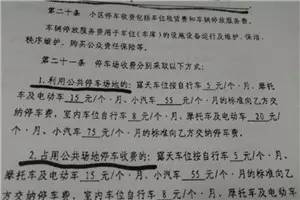 第二十条 小区停车收费包括车位租赁费和车辆停放服务费。
车辆停放服务费用于车位(车库)的设施设备运行及维护、保洁、
秩序维护、购买公众责任保险等。
第二十一条 停车场收费分别采取以下方式：
1.利用公共停车场地的：露天车位按自行车 5 元/个·月、摩托
车及电动车 15 元/个·月、小汽车 55 元/个·月的标准向乙方交
纳停车费。室内车位自行车 8 元/个·月、摩托车及电动车 20
元/个·月、小汽车 75 元/个·月的标准向乙方交纳停车费。
2.占用公共场地停车收费的：露天车位按自行车 5 元/个·月、
摩托车及电动车 15 元/个·月、小汽车 55 元/个·月的标准向乙
方交纳停车费，室内车位自行车 8 元/个·月、摩托车及电动车